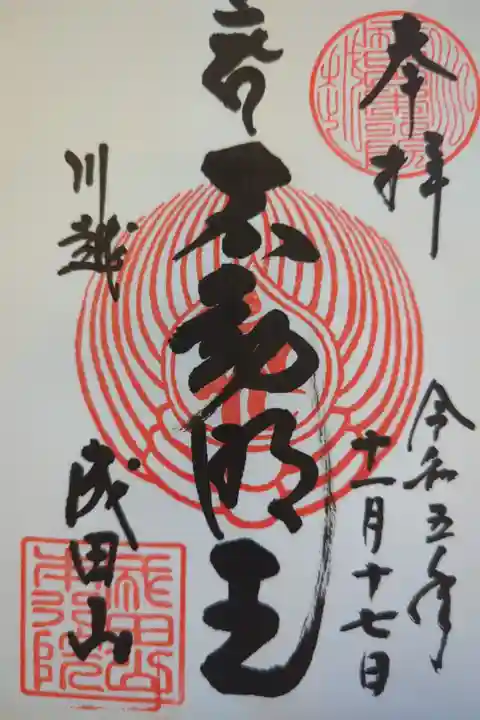 奉拝
令和五年
十一月十七日
不動明王
川越
成田山